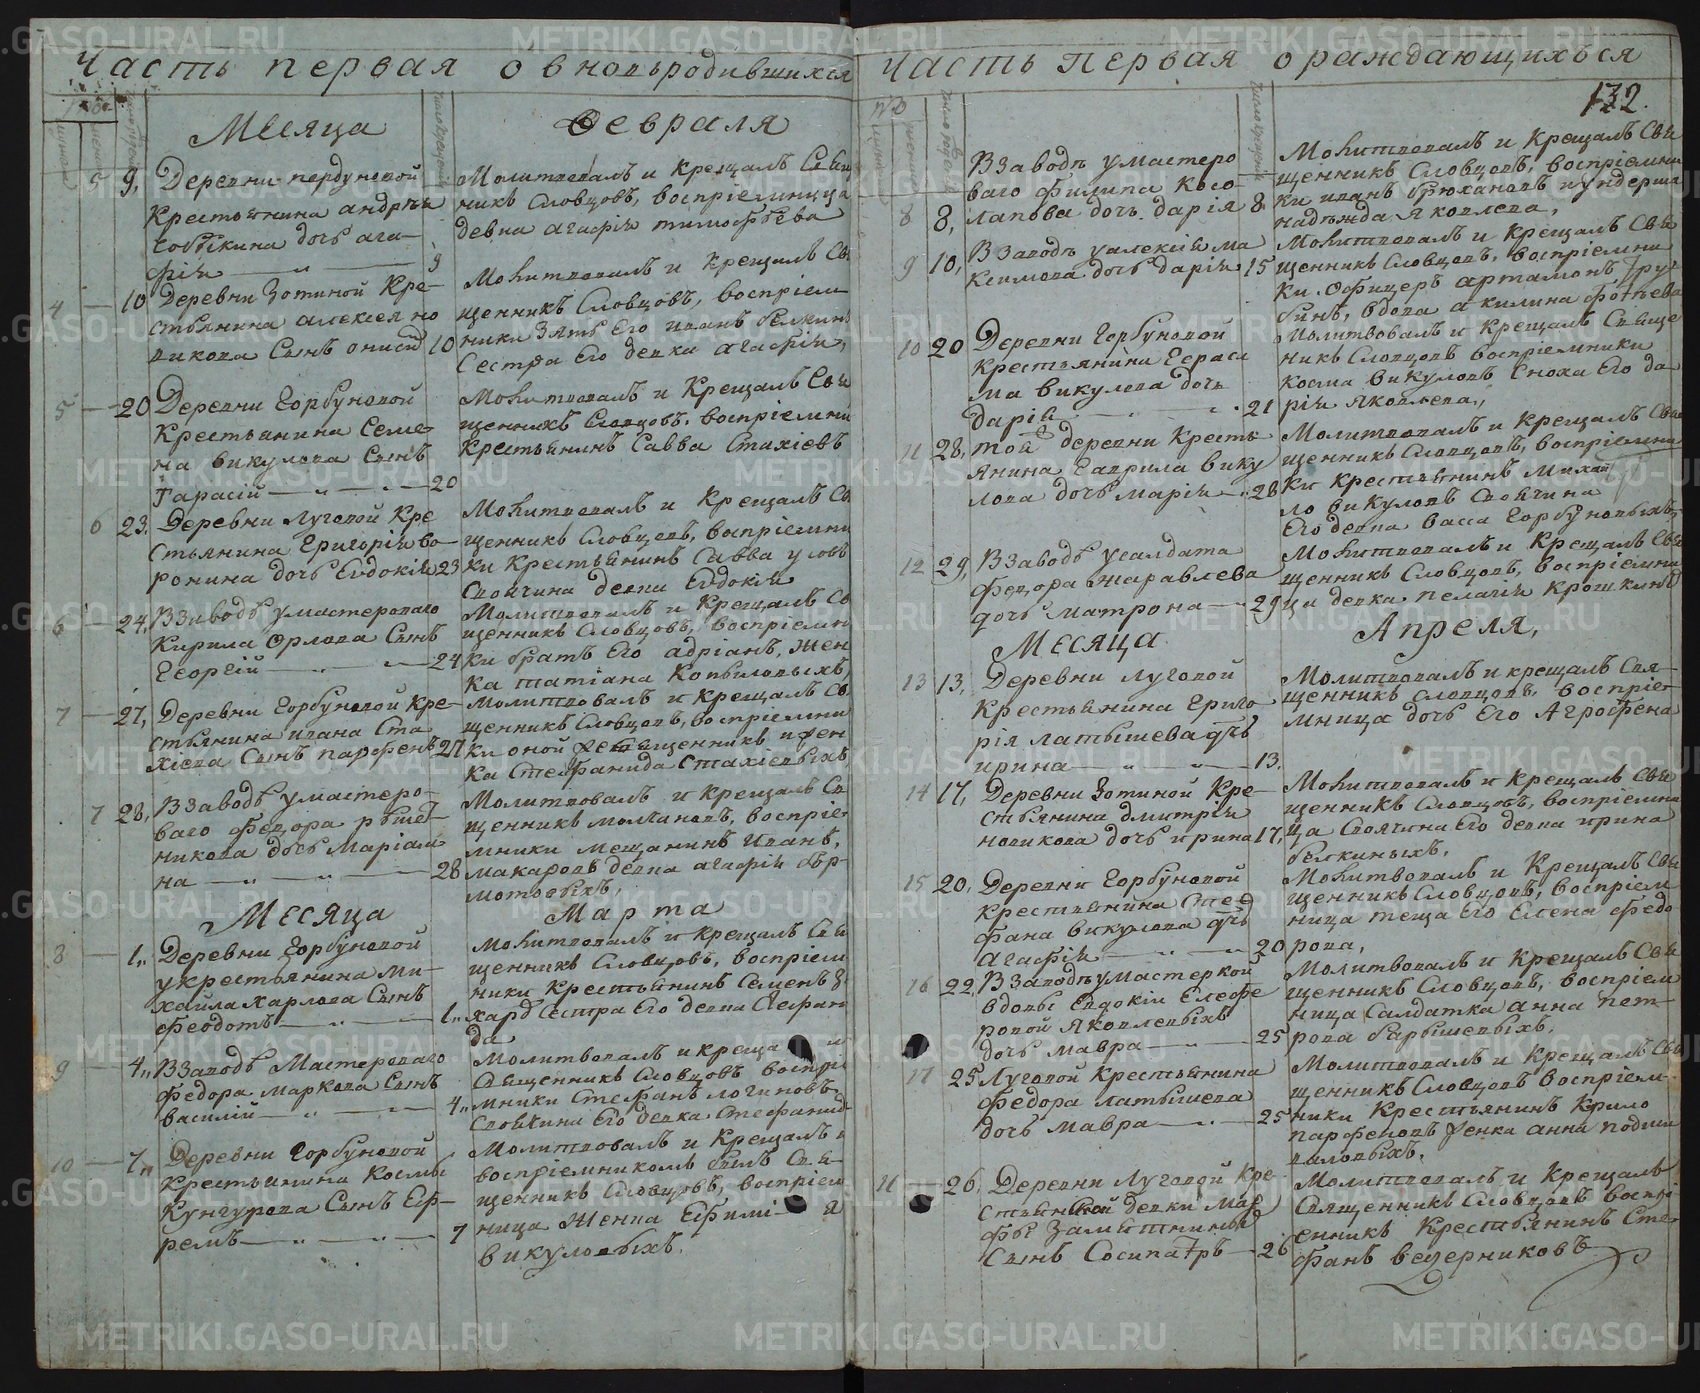 Часть первая о вновьродившихся
Месяца Февраля
5 9, Деревни горбуновой
Крестьянина андрея
дочь ага-
фiи 9
Молитвовалъ и Крещалъ Свящ
никъ Словцовъ, воспрiемница
девка агафiи тимофеева
4 10 Деревни Зотиной Кре-
стьянина алексея но
викова Сынъ онисiй 10
Молитвовалъ и Крещалъ Св
щенникъ Словцовъ, воспрiем
ники Зять Его иванъ белкинъ
Сестра Его девка агафiи,
5 20 Деревни Горбуновой
Крестьянина Семе-
на викулова Сынъ
Тарасiй 20
Молитвовалъ и Крещалъ Свя
щенникъ Словцовъ, воспрiемни
Крестьянинъ Савва Стахiевъ
6 23. Деревни Луговой Кре
стьянина Григорiя во-
ронина дочь Евдокiи 23
Молитвовалъ и Крещалъ Св
щенникъ Словцовъ, воспрiемни
ки Крестьянинъ Савва
Своячина девка Евдокiи
6 24, В Заводе у мастероваго
Кирила Орлова Сынъ
Георгiй 24
Молитвовалъ и Крещалъ Св
щенникъ Словцовъ, воспрiемни
ки братъ Его адрiанъ, жен
ка татiана Копыловыхъ
7 27, Деревни Горбуновой Кре-
стьянина ивана Ста
хiева Сынъ парфенъ 27
Молитвовалъ и Крещалъ Св
щенникъ Словцовъ, воспрiемни
ки оной же Священникъ и жен
ка Стефанида Стахiевыхъ
7 28, В Заводе у мастеро-
ваго Федора решет-
никова дочь Марiам
на 28
Молитвовалъ и Крещалъ Св
щенникъ молчановъ, воспрiе-
мники мещанинъ Иванъ,
макаровъ девка агафiи
Месяца Марта
8 1,, Деревни Горбуновой
у крестьянина ми-
хайла харлова Сынъ
Феодотъ 1,,
Молитвовалъ и Крещалъ Свя
щенникъ Словцовъ, воспрiем
ники Крестьянинъ Семенъ
Сестра Его девка Стефани
да
9 4,, В Заводе Мастероваго
Федора Маркова Сынъ
василiй 4,,
Молитвовалъ и креща
Священникъ Словцовъ воспрi
мники Стефанъ логиновъ
Его девка Стефанид
10 7,, Деревни Горбуновой
Крестьянина Космы
Кунгурова Сынъ Еф-
ремъ 7
Молитвовалъ и Крещалъ
воспрiемникомъ былъ Свя-
щенникъ Словцовъ, воспрiем
ница Женка Ефимi я
викуловыхъ.
Часть первая о раждающихъся
132.
8 8, В Заводе у мастеро
ваго филипа Косо-
лапова дочь дарiя 8
Молитвовалъ и Крещалъ Свя
щенникъ Словцовъ, воспрiемни
ки иванъ брюхановъ и ундерша
надежда Яковлева,
9 10, В Заводе у алексiя ма
ксимова дочь дарiи 15
Молитвовалъ и Крещалъ Свя
щенникъ Словцовъ, воспрiемни
ки офицеръ артамонъ тру-
бинъ, вдова акилина фотеева
10 20 Деревни Горбуновой
крестьянина Гераси
ма викулова дочь
Дарiи 21
Молитвовалъ и Крещалъ Свяще
никъ Словцовъ воспрiемники
косма викуловъ Сноха Его да
рiи Яковлева,,
11 28, той деревни Кресть-
янина Гаврила вику
лова дочь марiи 28
Молитвовалъ и Крещалъ Свя
щенникъ Словцовъ, воспрiемни
ки крестьянинъ михай
ло викуловъ Своячина
Его девка васса Горбуновыхъ,
12 29, В Заводе у салдата
Федора жаравлева
дочь матрона 29
Молитвовалъ и Крещалъ Свя
щенникъ Словцовъ, воспрiемни
ца девка пелагiи Крошкинъ
Месяца Апреля,
13 13, Деревни Луговой
Крестьянина Григо
рiя латышева дчь
ирина 13.
Молитвовалъ и крещалъ Свя-
щенникъ словцовъ, воспрiе-
мница дочь Его Агрофена
14 17, Деревни Зотиной Кре-
стьянина Дмитрiи
новикова дочь ирина 17,
Молитвовалъ и крещалъ Свя
щенникъ Словцовъ, воспрiемни
ца Своячина Его девка ирина
белкиныхъ.
15 20, Деревни Горбуновой
крестьянина Сте
фана викулова дчь
Агафiи 20
Молитвовалъ и Крещалъ Свя
щенникъ Словцовъ, воспрiем
ница теща Его Елена федо
рова,
16 22, В Заводе у мастерской
вдовы Евдокiи Елефе
ровой Яковлевыхъ
дочь мавра 25
Молитвовалъ и Крещалъ Свя
щенникъ Словцовъ, воспрiем
ница Салдатка анна пет-
рова барышевыхъ.
17 25 Луговой Крестьянина
Федора латышева
дочь мавра 25
Молитвовалъ и Крещалъ Свя
щенникъ Словцовъ воспрiем-
ники Крестьянинъ Крило
парфеновъ женка анна
11 26, Деревни Луговой Кре
стьянской девки Мар
фы Замятниной
Сынъ Сосипатръ 26
Молитвовалъ и Крещалъ
Священникъ Словцовъ воспрi
емникъ Крестьянинъ Сте-
фанъ ведерниковъ
METRIKI.GASO-URAL.RU